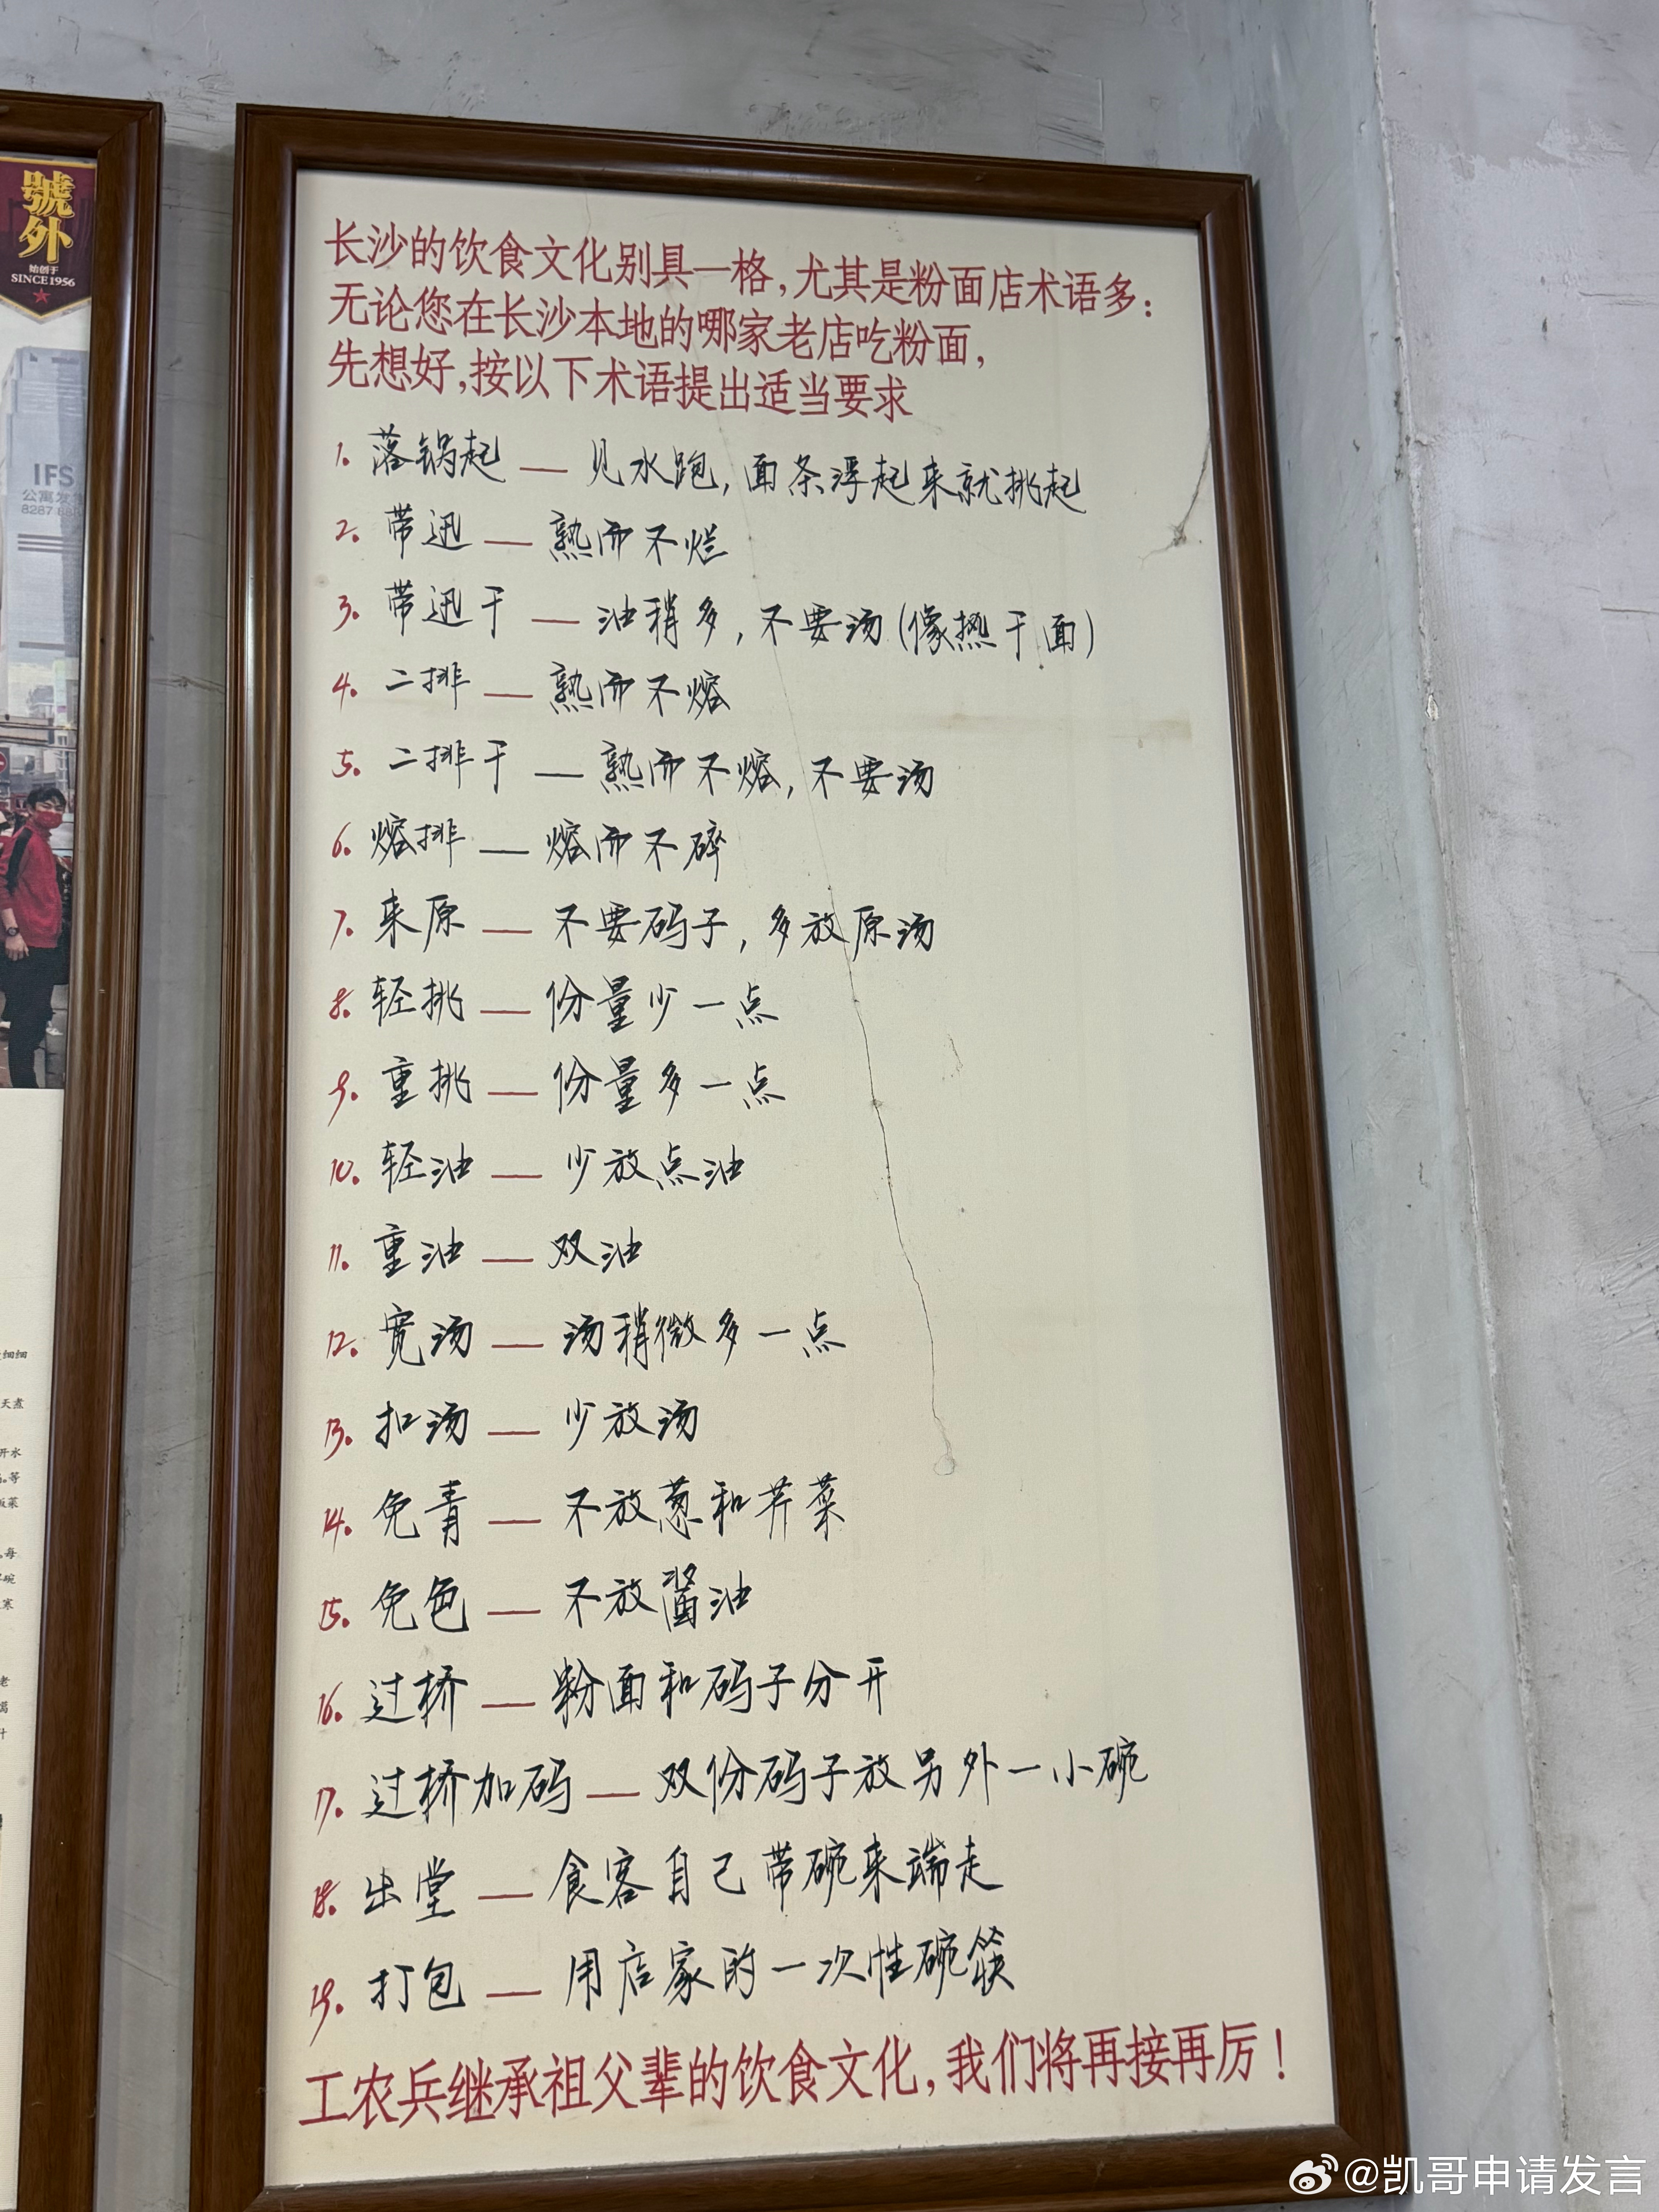 號外
始创于
SINCE 1956
IFS
8287
细细
天煮
开水
等
每
碗
寒
老
长沙的饮食文化别具一格,尤其是粉面店术语多:
无论您在长沙本地的哪家老店吃粉面,
先想好,按以下术语提出适当要求
1. 落锅起 — 见水跑,面条浮起来就挑起
2. 带迅 — 熟而不烂
3. 带迅干 — 油稍多,不要汤(像热干面)
4. 二排 — 熟而不熔
5. 二排干 — 熟而不熔,不要汤
6. 熔排 — 熔而不碎
7. 来原 — 不要码子,多放原汤
8. 轻挑 — 份量少一点
9. 重挑 — 份量多一点
10. 轻油 — 少放点油
11. 重油 — 双油
12. 宽汤 — 汤稍微多一点
13. 扣汤 — 少放汤
14. 免青 — 不放葱和芹菜
15. 免色 — 不放酱油
16. 过桥 — 粉面和码子分开
17. 过桥加码 — 双份码子放另外一小碗
18. 出堂 — 食客自己带碗来端走
19. 打包 — 用店家的一次性碗筷
工农兵继承祖父辈的饮食文化,我们将再接再厉!
@凯哥申请发言